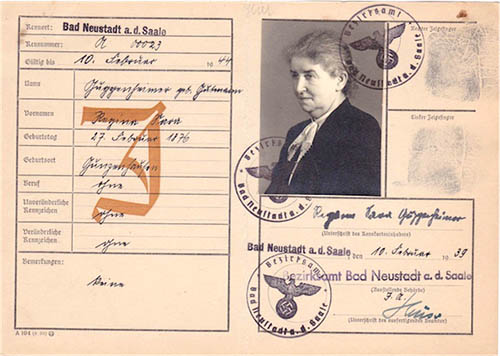 Kennort: Bad Neustadt a.d. Saale
Kennummer: A 00023
Gültig bis 10. Februar 1944
Name Guggenheimer geb. Gutmann
Vornamen Regina Sara
Geburtstag 27. Februar 1876
Geburtsort Gunzenhausen
Beruf ohne
Unveränderliche
Kennzeichen ohne
Veränderliche
Kennzeichen ohne
Bemerkungen:
keine
J
Bezirksamt
Bad Neustadt a.d. Saale
Rechter Zeigefinger
Linker Zeigefinger
Bad Neustadt a.d.
Regina Sara Guggenheimer
(Unterschrift des Kennkarteninhabers)
Bad Neustadt a.d. Saale, den 10. Februar 1939
Bezirksamt Bad Neustadt a.d. Saale
(Ausstellende Behörde)
(Unterschrift des ausfertigenden Beamten)
Bezirksamt
Bad Neustadt a.d. Saale